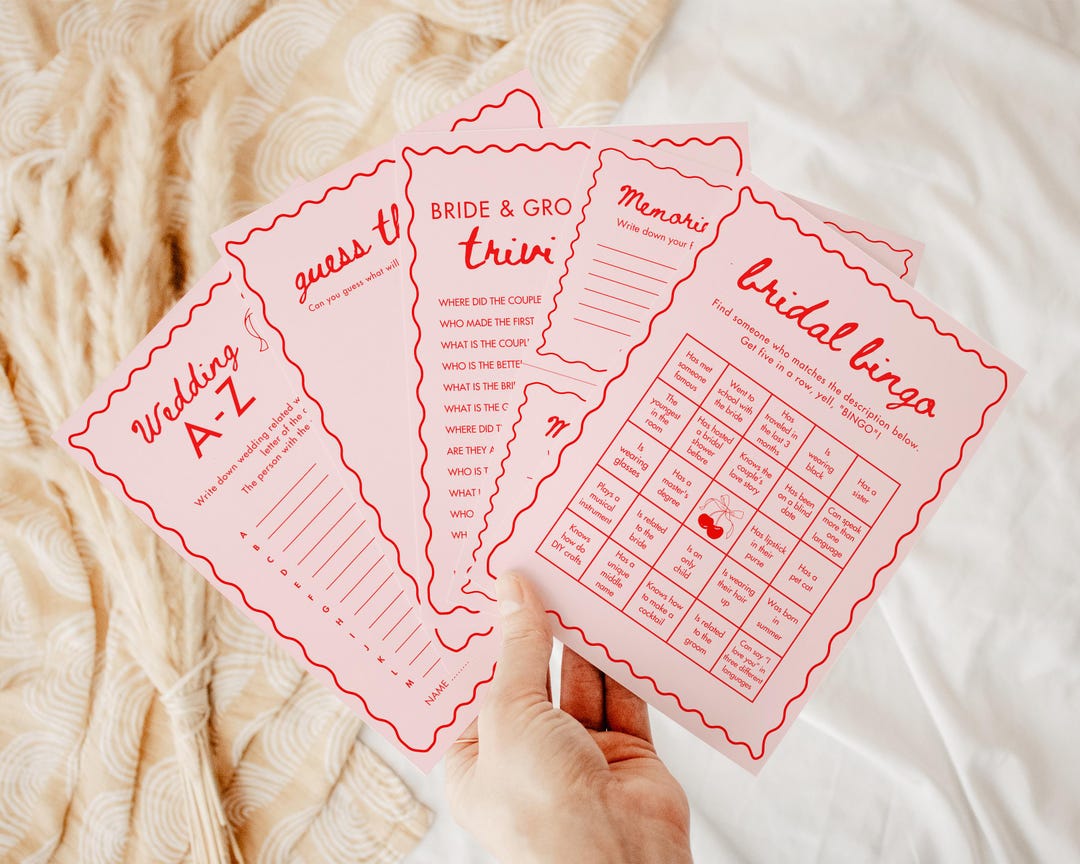 Wedding
A-Z
Write down wedding related w
letter of the
The person with the
A
B
C
D
E
F
G
H
I
J
K
L
M
NAME .......
guess th
Can you guess what will
BRIDE & GRO
trivi
WHERE DID THE COUPLE
WHO MADE THE FIRST
WHAT IS THE COUPL
WHO IS THE BETTE
WHAT IS THE BRI
WHAT IS THE G
WHERE DID T
ARE THEY A
WHO IS T
WHAT
WHO
WH
Memorie
Write down your f
m
bridal bingo
Find someone who matches the description below.
Get five in a row, yell, "BINGO"!
Has met
someone
famous
Went to
school with
the bride
Has
traveled in
the last 3
months
Is
wearing
black
Has a
sister
The
youngest
in the
room
Has hosted
a bridal
shower
before
Knows the
couple's
love story
Has been
on a blind
date
Can speak
more than
one
language
Is
wearing
glasses
Has a
master's
degree
Has lipstick
in their
purse
Has a
pet cat
Plays a
musical
instrument
Is related
to the
bride
Is an
only
child
Is wearing
their hair
up
Was born
in
summer
Knows
how do
DIY crafts
Has a
unique
middle
name
Knows how
to make a
cocktail
Is related
to the
groom
Can say "I
love you" in
three different
languages